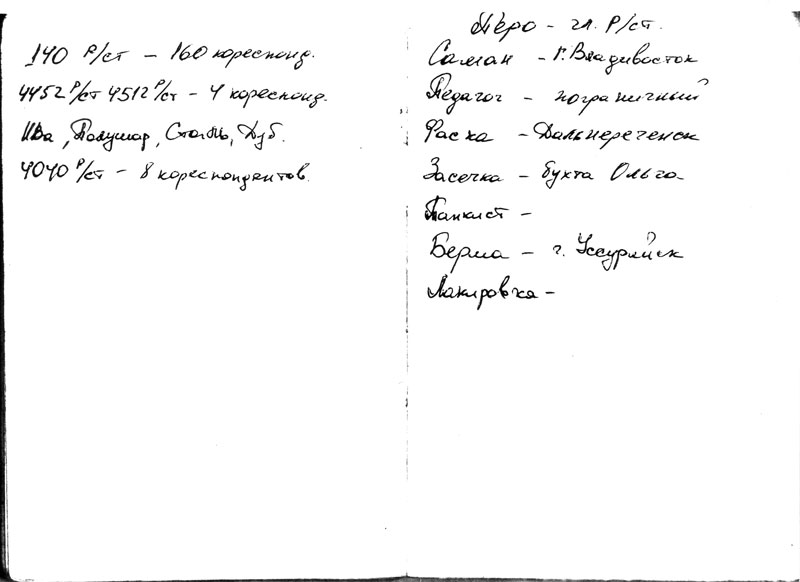 140 Р/ст – 160 кореспонд.
4452 Р/ст 4512 Р/ст – 4 кореспонд.
Ива, Полушар, Столбы, Дуб.
4040 Р/ст – 8 кореспондентов.
Перо – гл. Р/ст.
Салган – г. Владивосток
Педагог – пограничный
Фаска – Дальнереченск
Засечка – бухта Ольга
Танкист –
Берма – г. Уссурийск
Лакировка –